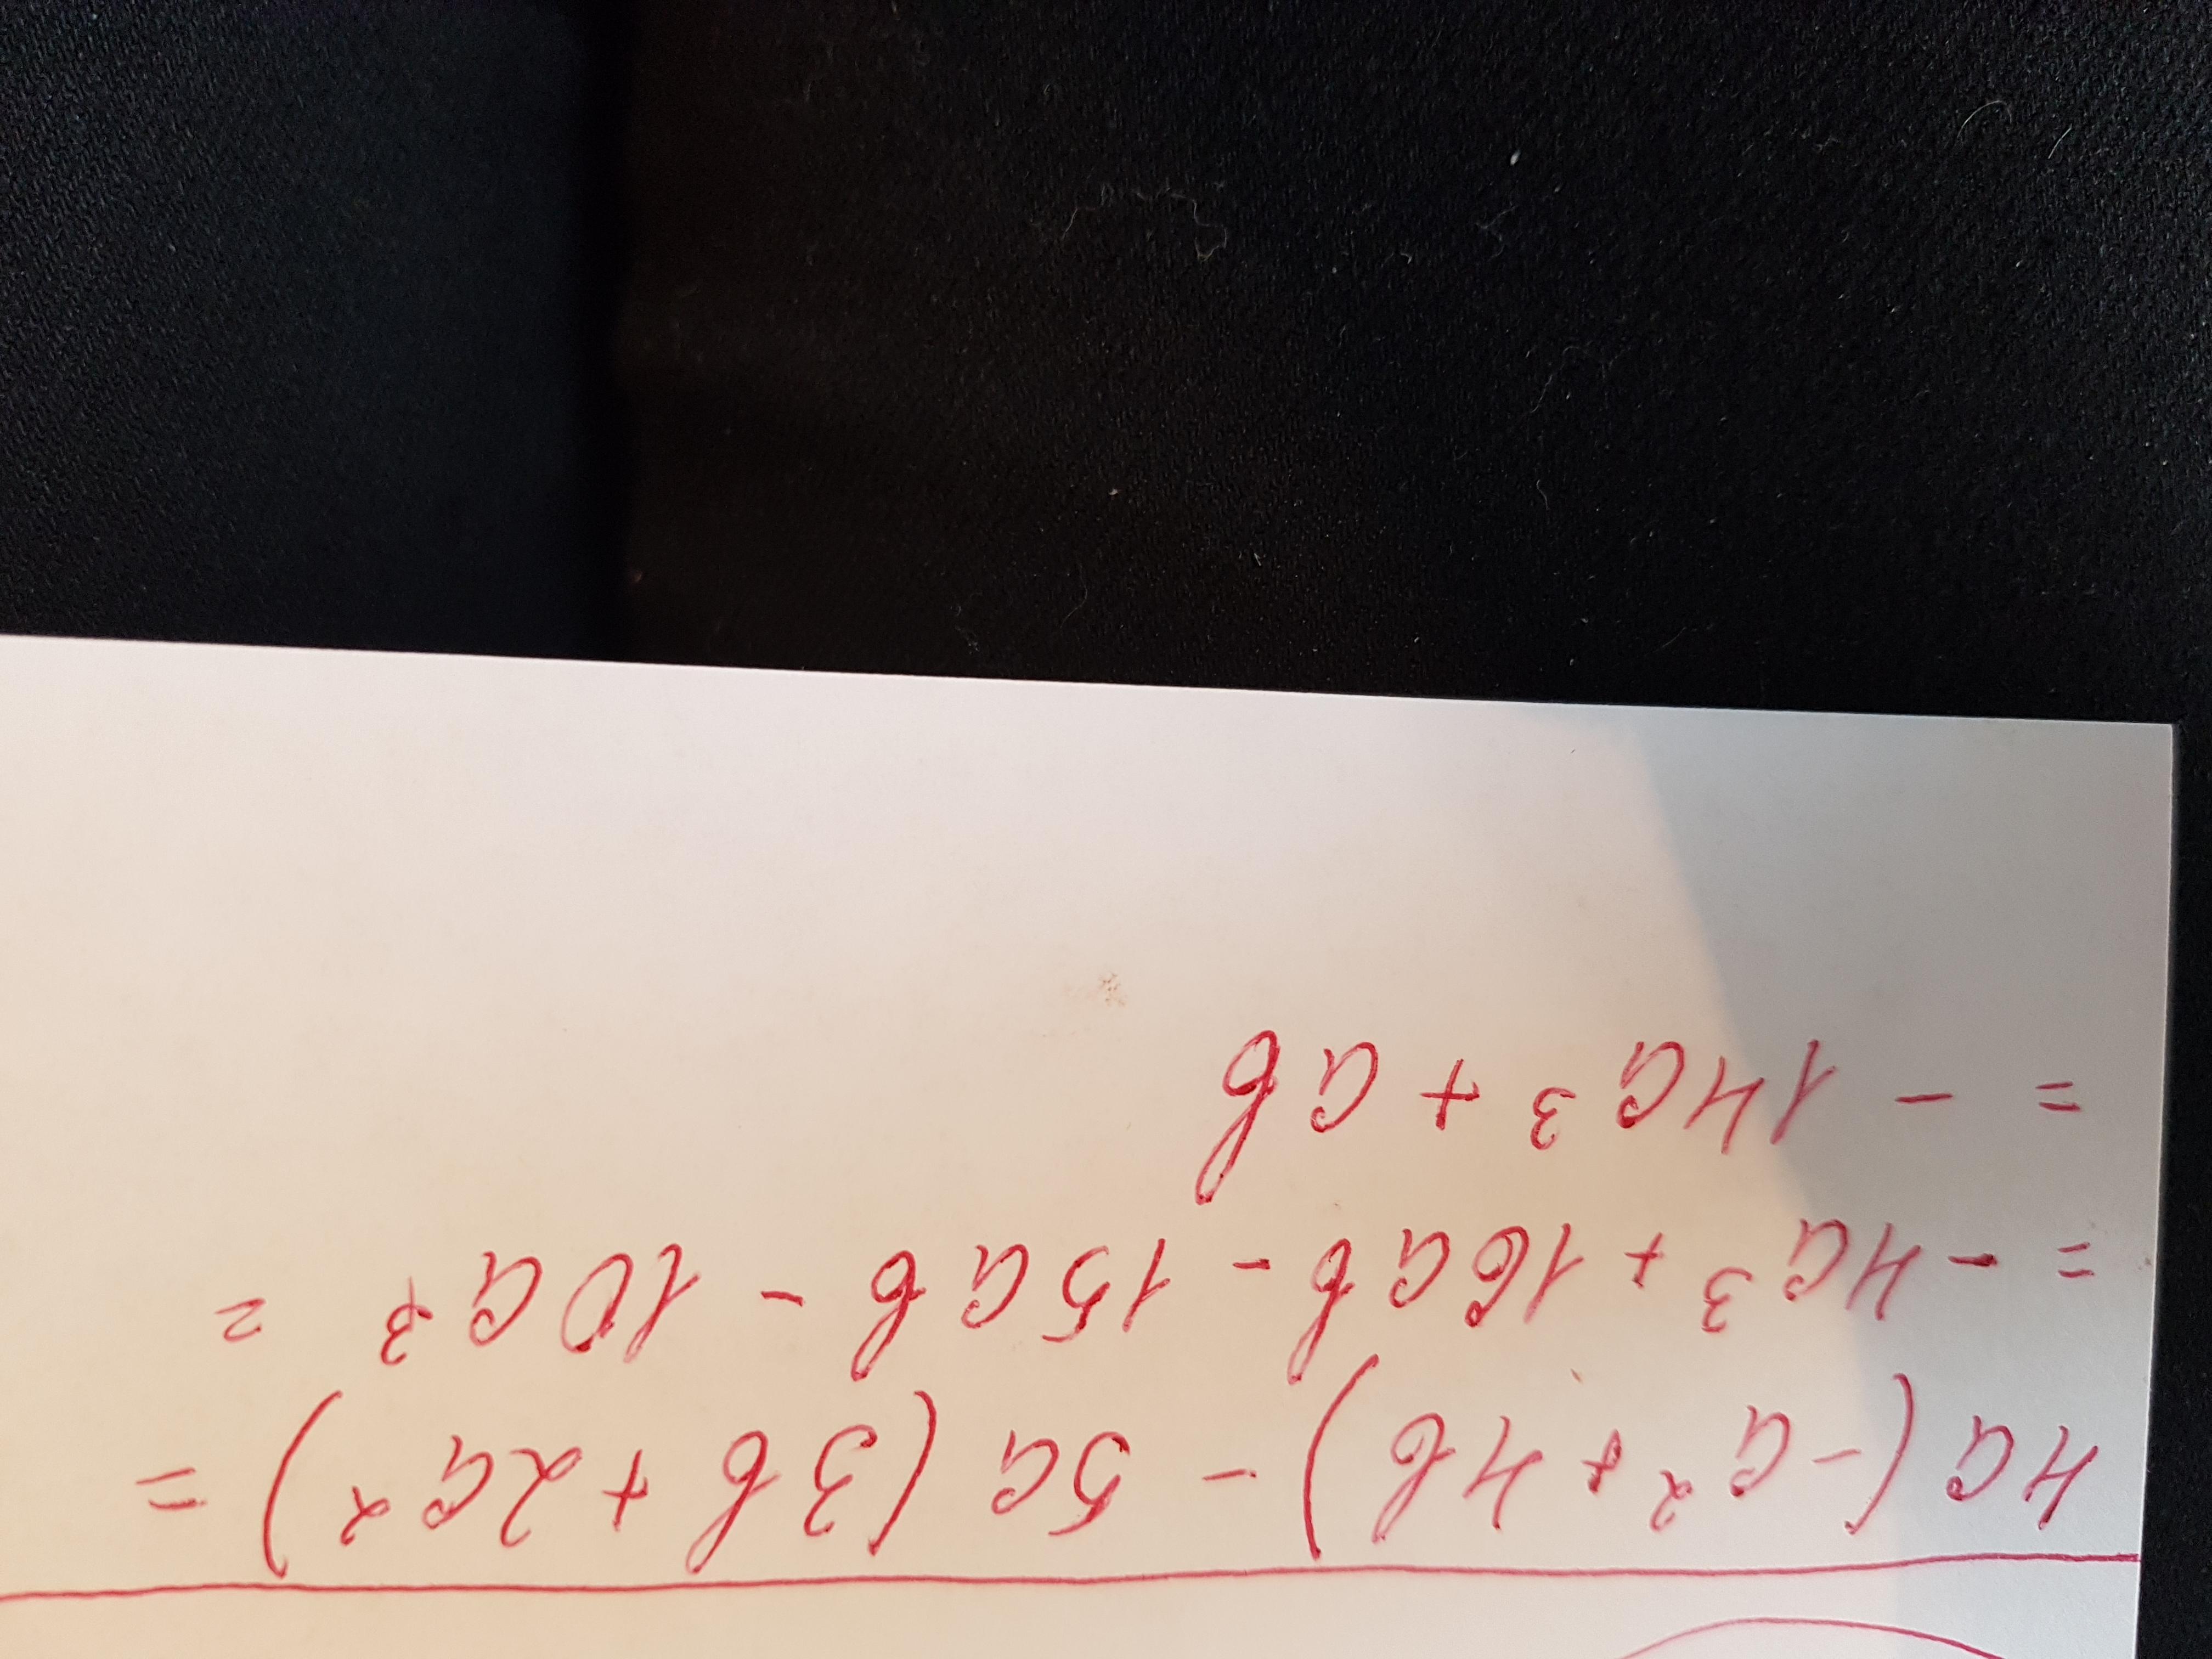 4a(-a²+4b)-5a(3b+2a²)=
=-4a³+16ab-15ab-10a³=
=-14a³+ab